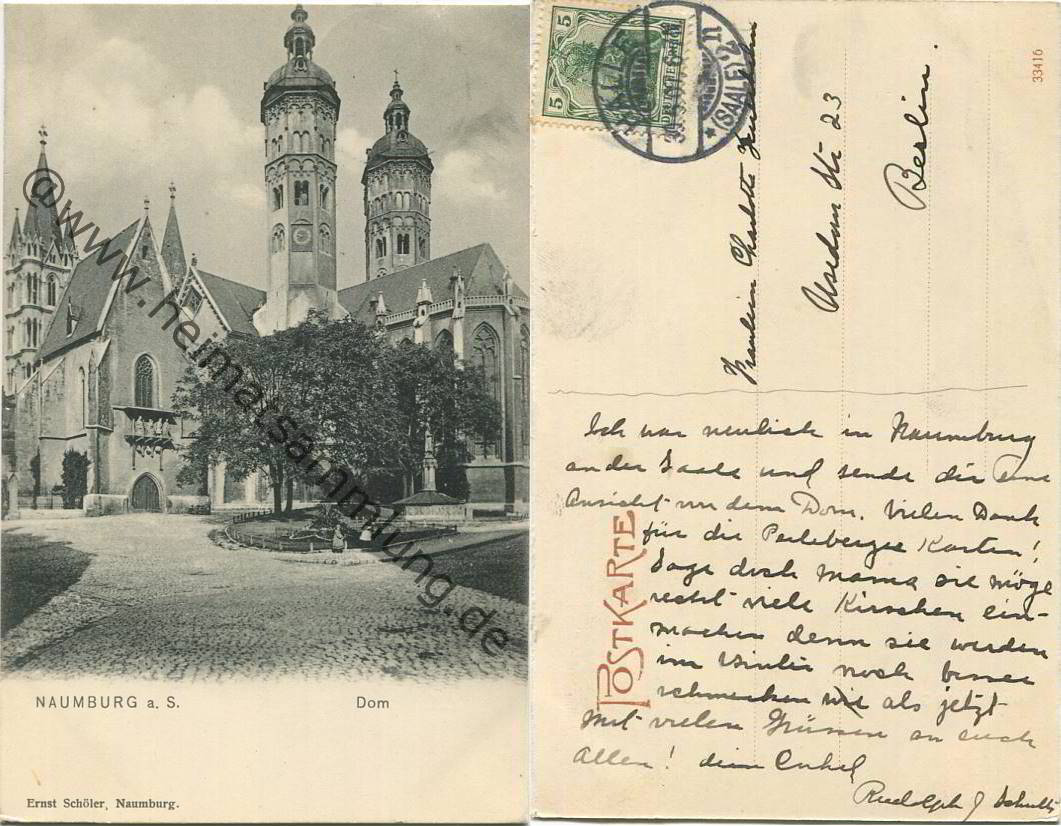 @www.heimatsammlung.de
NAUMBURG a. S. Dom
Ernst Schöler, Naumburg.
5 5
(SAALE)
33416
Fräulein Charlotte
Usedom Str 23
Berlin.
POSTKARTE
Ich war neulich in Naumburg
an der Saale und sende dir eine
Ansicht von dem Dom. Vielen Dank
für die Perleberger Karten!
Sage doch Mama sie möge
recht viele Kirschen ein-
machen denn sie werden
im Winter noch besser
schmecken wie als jetzt
Mit vielen Grüssen an euch
Allen! dein Onkel
Rudolph J Schultz